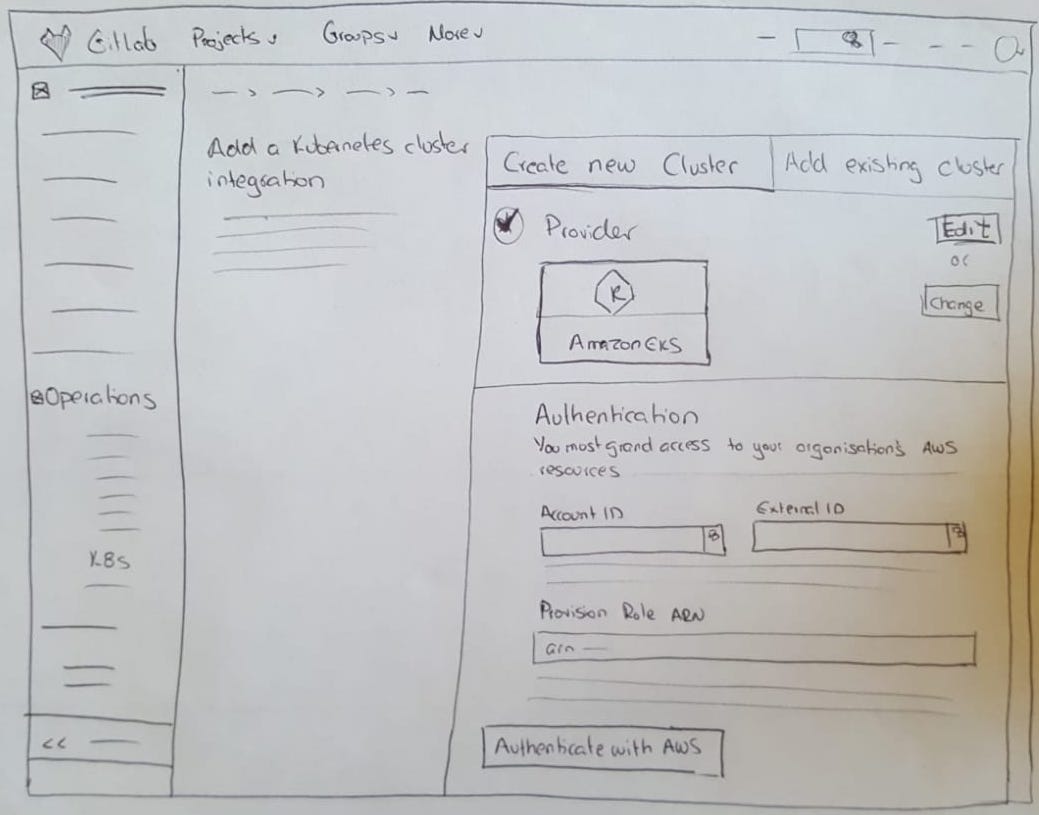 GitLab Projects Groups More
Add a Kubernetes cluster
integration
Create new Cluster
Add existing cluster
Provider
Edit
or
Change
Amazon EKS
Operations
K8s
<<
Authentication
You most grand access to your organisation's AWS
resources
Account ID
External ID
Provision Role ARN
arn —
Authenticate with AWS